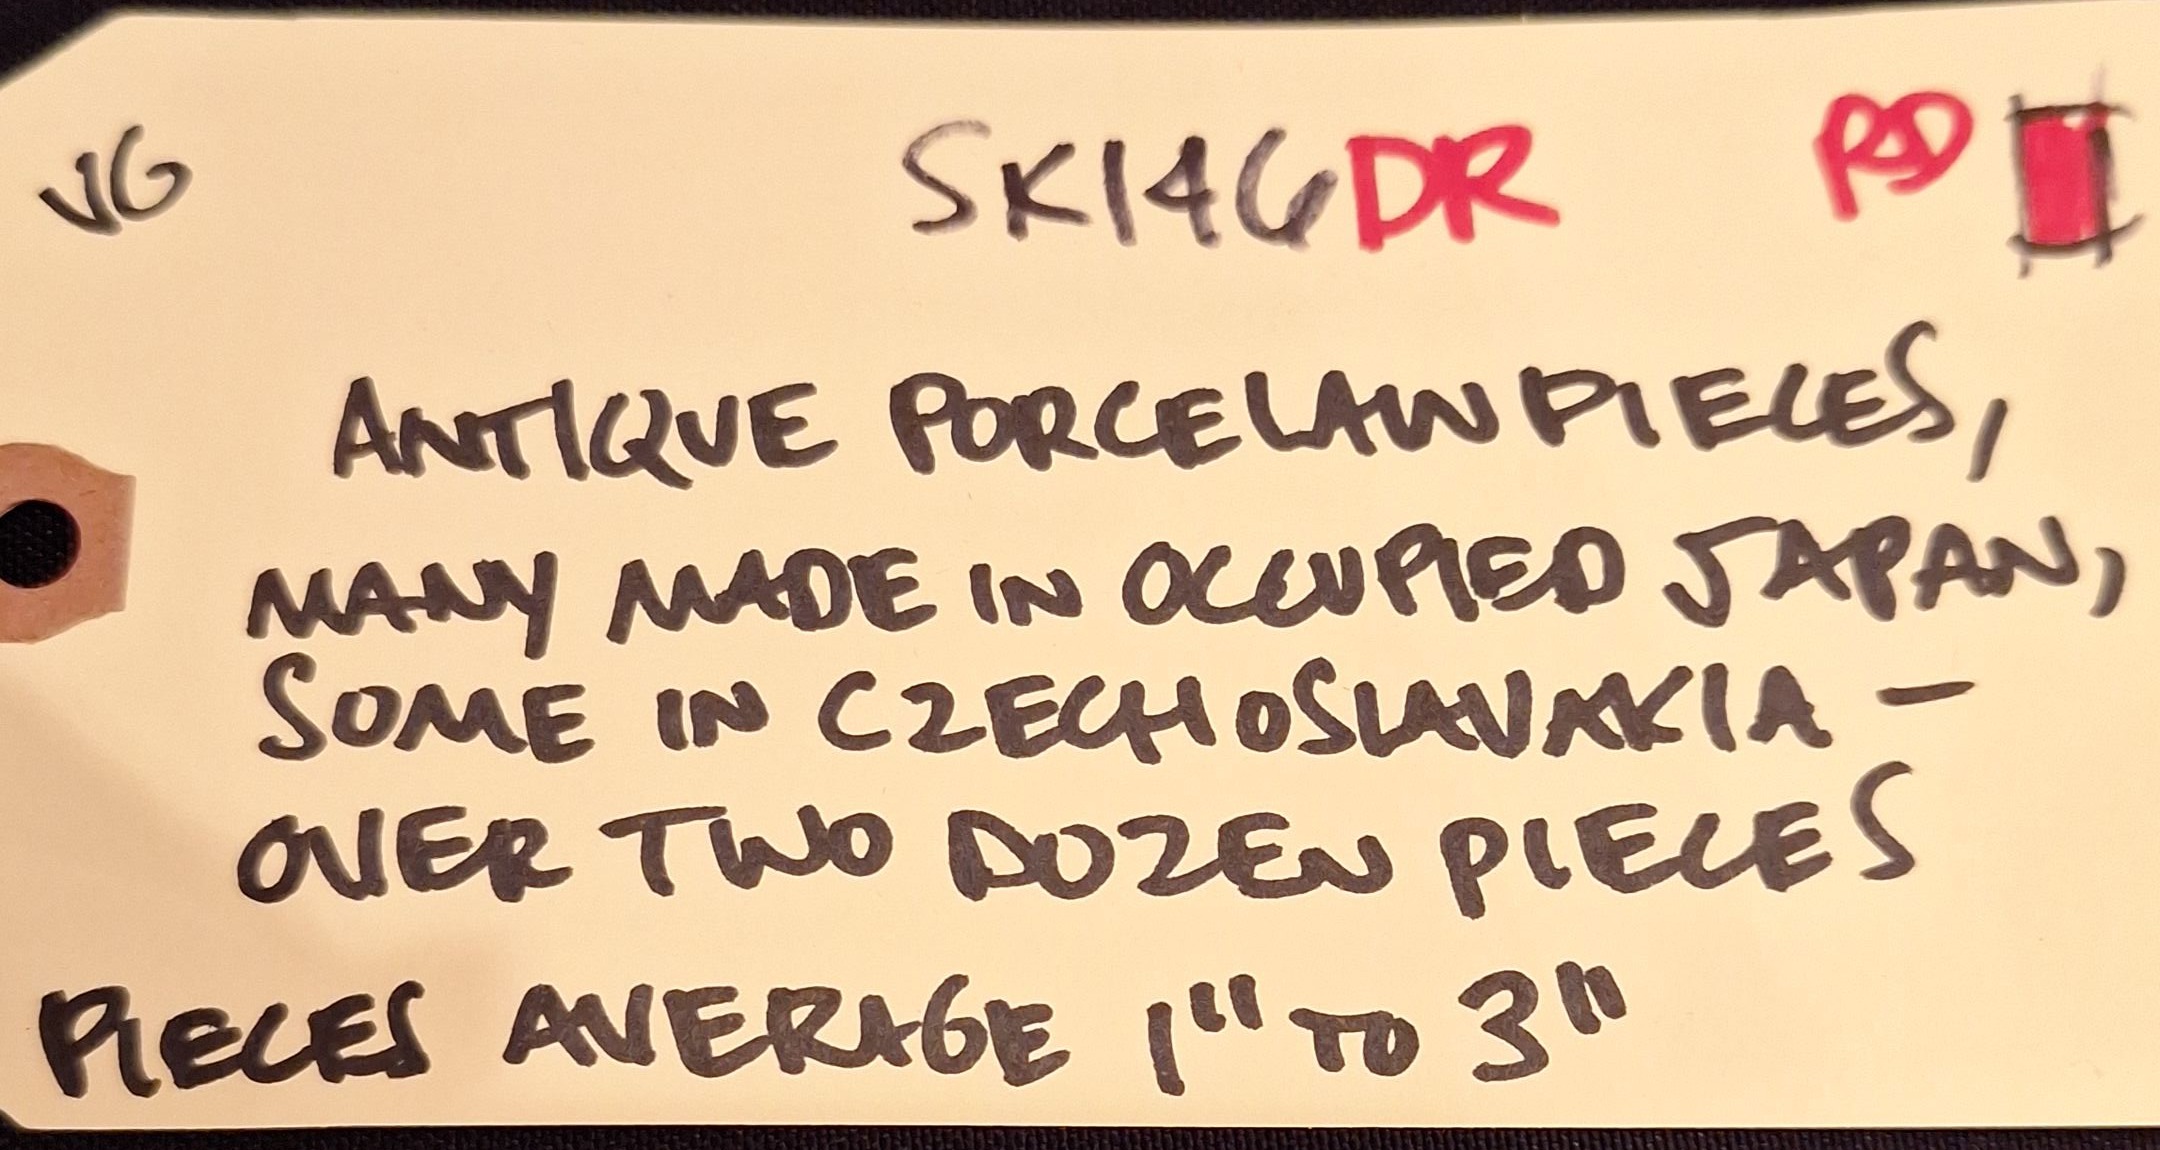 VG SK146DR RD
ANTIQUE PORCELAIN PIECES,
MANY MADE IN OCCUPIED JAPAN,
SOME IN CZECHOSLAVAKIA –
OVER TWO DOZEN PIECES
PIECES AVERAGE 1" TO 3"